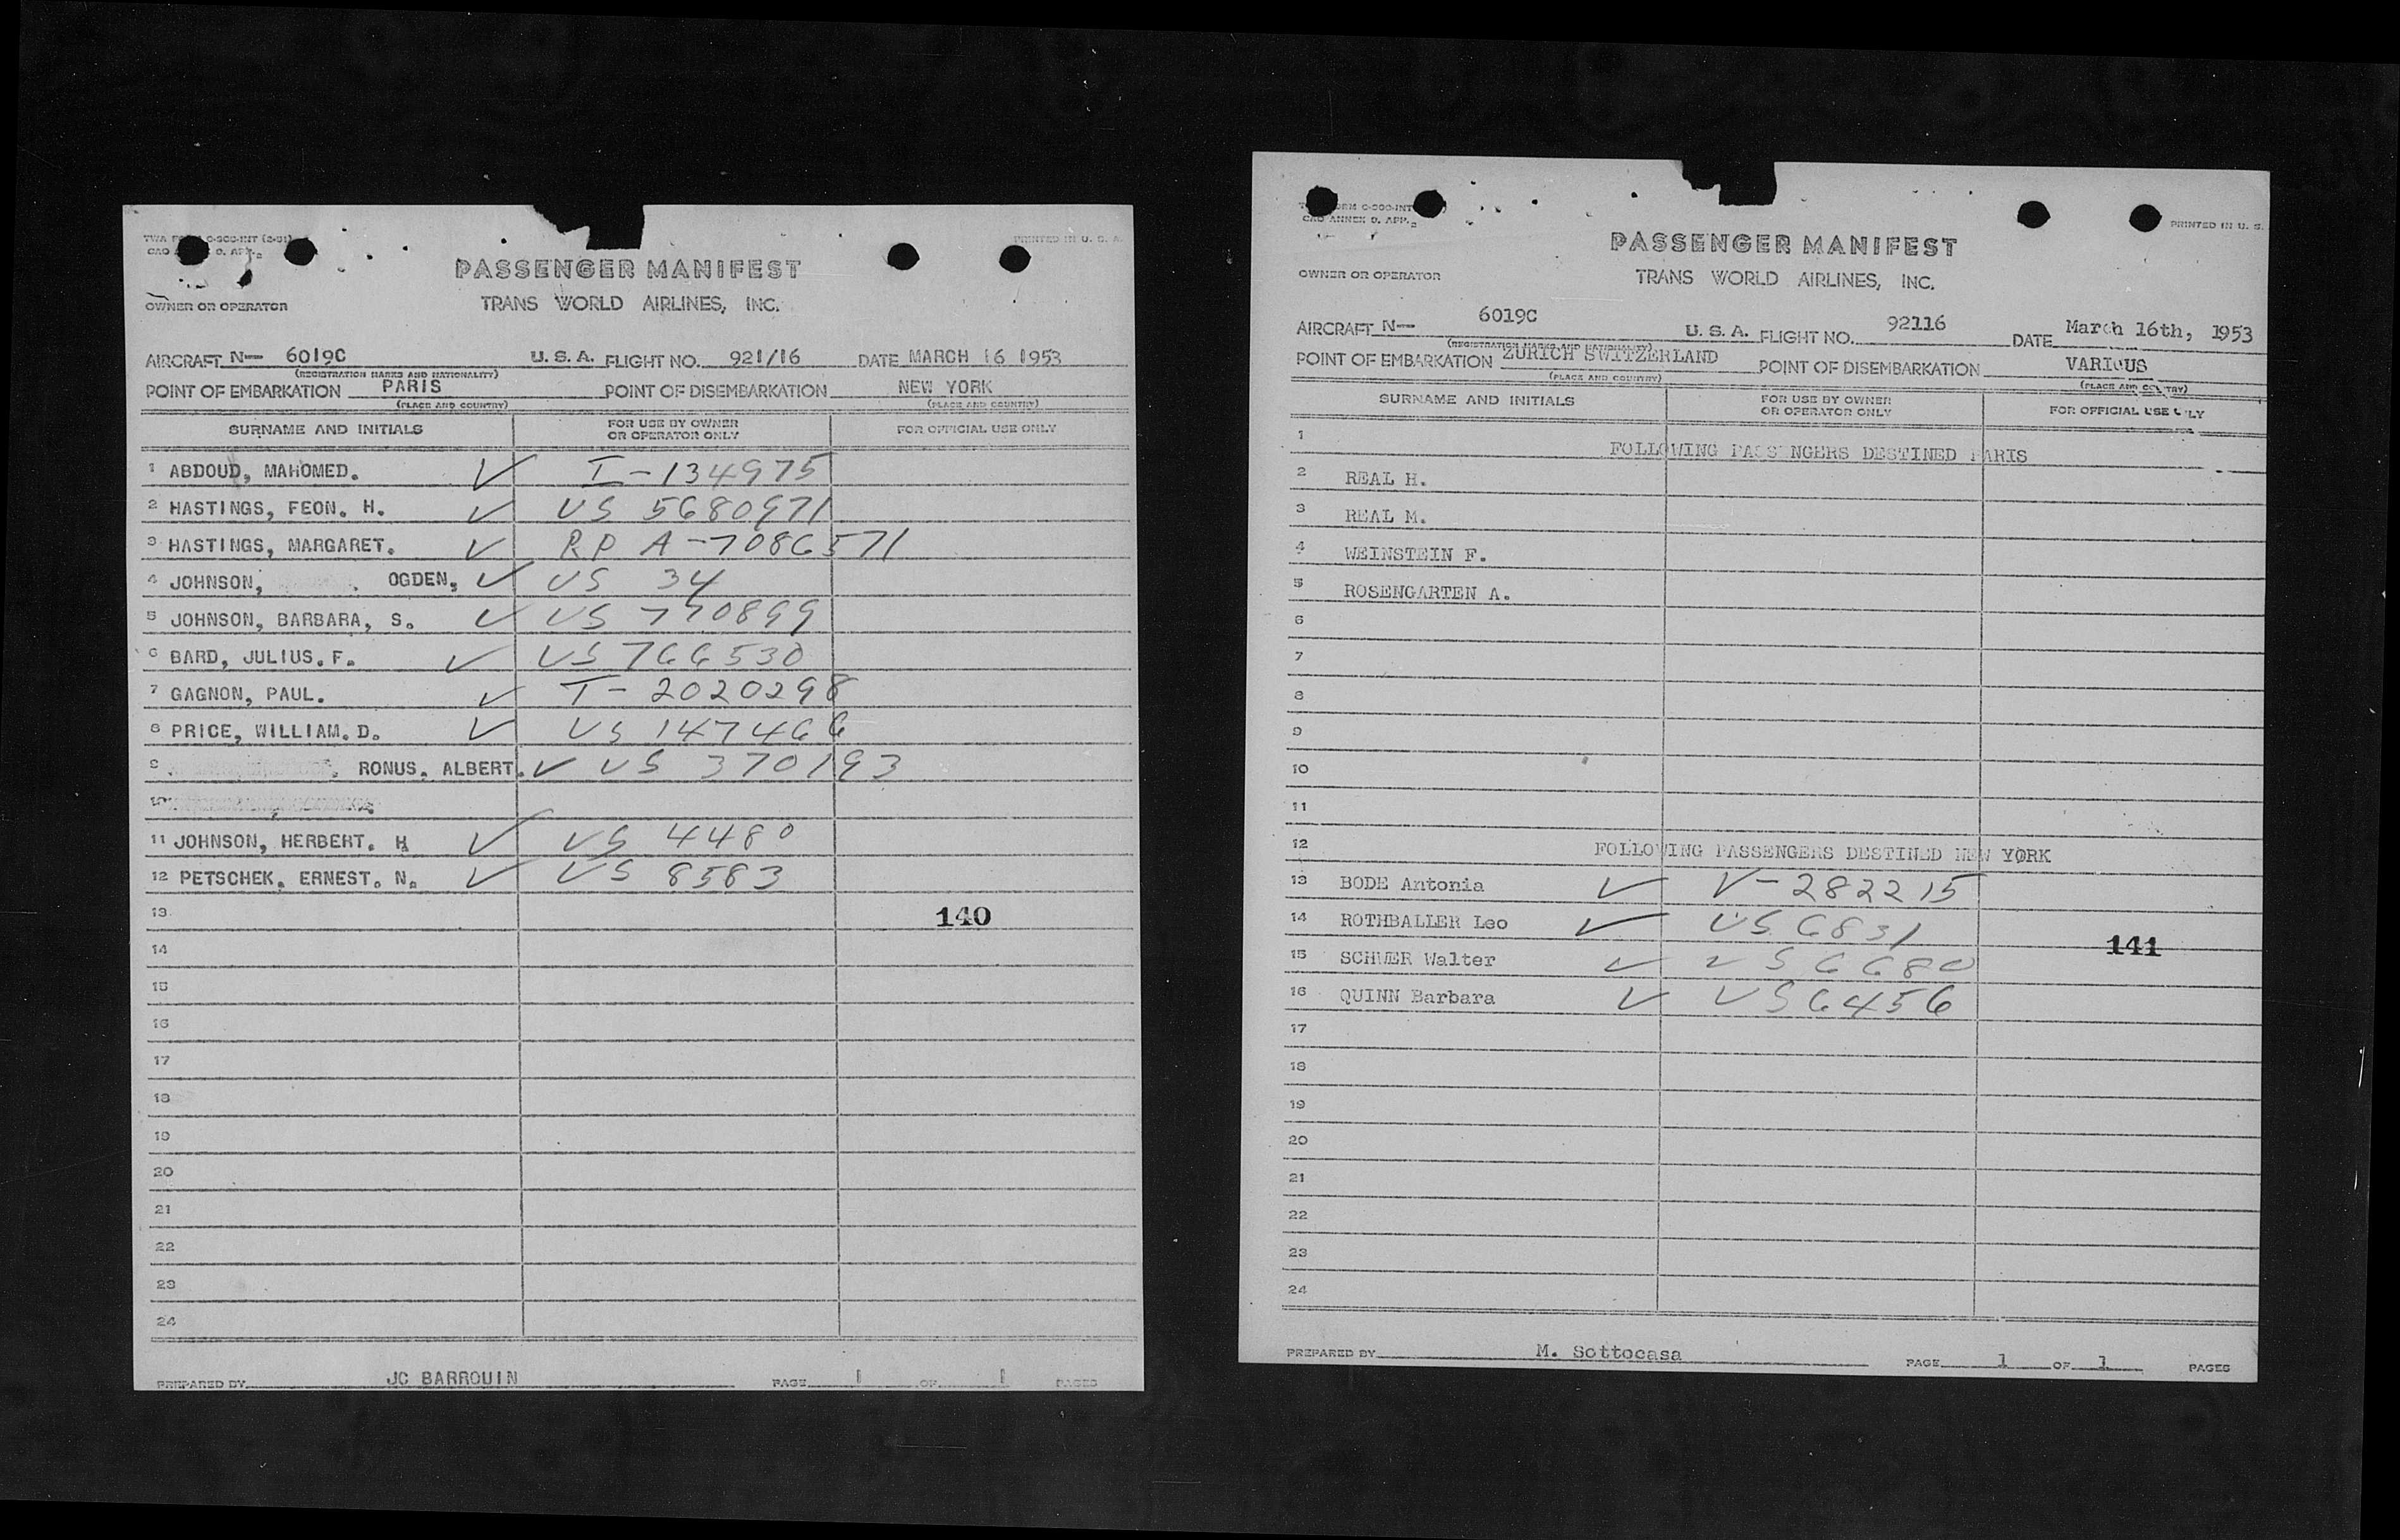 PRINTED IN U. S. A.
PASSENGER MANIFEST
OWNER OR OPERATOR TRANS WORLD AIRLINES, INC.
AIRCRAFT N— 6019C U. S. A. FLIGHT NO. 921/16 DATE MARCH 16 1953
(REGISTRATION MARKS AND NATIONALITY)
POINT OF EMBARKATION PARIS POINT OF DISEMBARKATION NEW YORK
(PLACE AND COUNTRY) (PLACE AND COUNTRY)
SURNAME AND INITIALS FOR USE BY OWNER OR OPERATOR ONLY FOR OFFICIAL USE ONLY
1 ABDOUD, MAHOMED. ✓ I-134975
2 HASTINGS, FEON. H. ✓ US 5680971
3 HASTINGS, MARGARET. ✓ RP A-7086571
4 JOHNSON, OGDEN, ✓ US 34
5 JOHNSON, BARBARA, S. ✓ US 770899
6 BARD, JULIUS. F. ✓ US 766530
7 GAGNON, PAUL. ✓ T-2020298
8 PRICE, WILLIAM. D. ✓ US 147466
9 RONUS. ALBERT. ✓ US 370193
10
11 JOHNSON, HERBERT. H ✓ US 4480
12 PETSCHEK. ERNEST. N. ✓ US 8583
13 140
14
15
16
17
18
19
20
21
22
23
24
PREPARED BY JC BARROUIN PAGE 1 OF 1 PAGES
PRINTED IN U. S.
PASSENGER MANIFEST
OWNER OR OPERATOR TRANS WORLD AIRLINES, INC.
AIRCRAFT N— 6019C U. S. A. FLIGHT NO. 92116 DATE March 16th, 1953
(REGISTRATION MARKS AND NATIONALITY)
POINT OF EMBARKATION ZURICH SWITZERLAND POINT OF DISEMBARKATION VARIOUS
(PLACE AND COUNTRY)
SURNAME AND INITIALS FOR USE BY OWNER OR OPERATOR ONLY FOR OFFICIAL USE
1 FOLLOWING PASSENGERS DESTINED PARIS
2 REAL H.
3 REAL M.
4 WEINSTEIN F.
5 ROSENGARTEN A.
6
7
8
9
10
11
12 FOLLOWING PASSENGERS DESTINED NEW YORK
13 BODE Antonia ✓ V-282215
14 ROTHBALLER Leo ✓ US 6831
141
15 Walter ✓ US 6680
16 QUINN Barbara ✓ US 6456
17
18
19
20
21
22
23
24
PREPARED BY M. Sottocasa PAGE 1 OF 1 PAGES